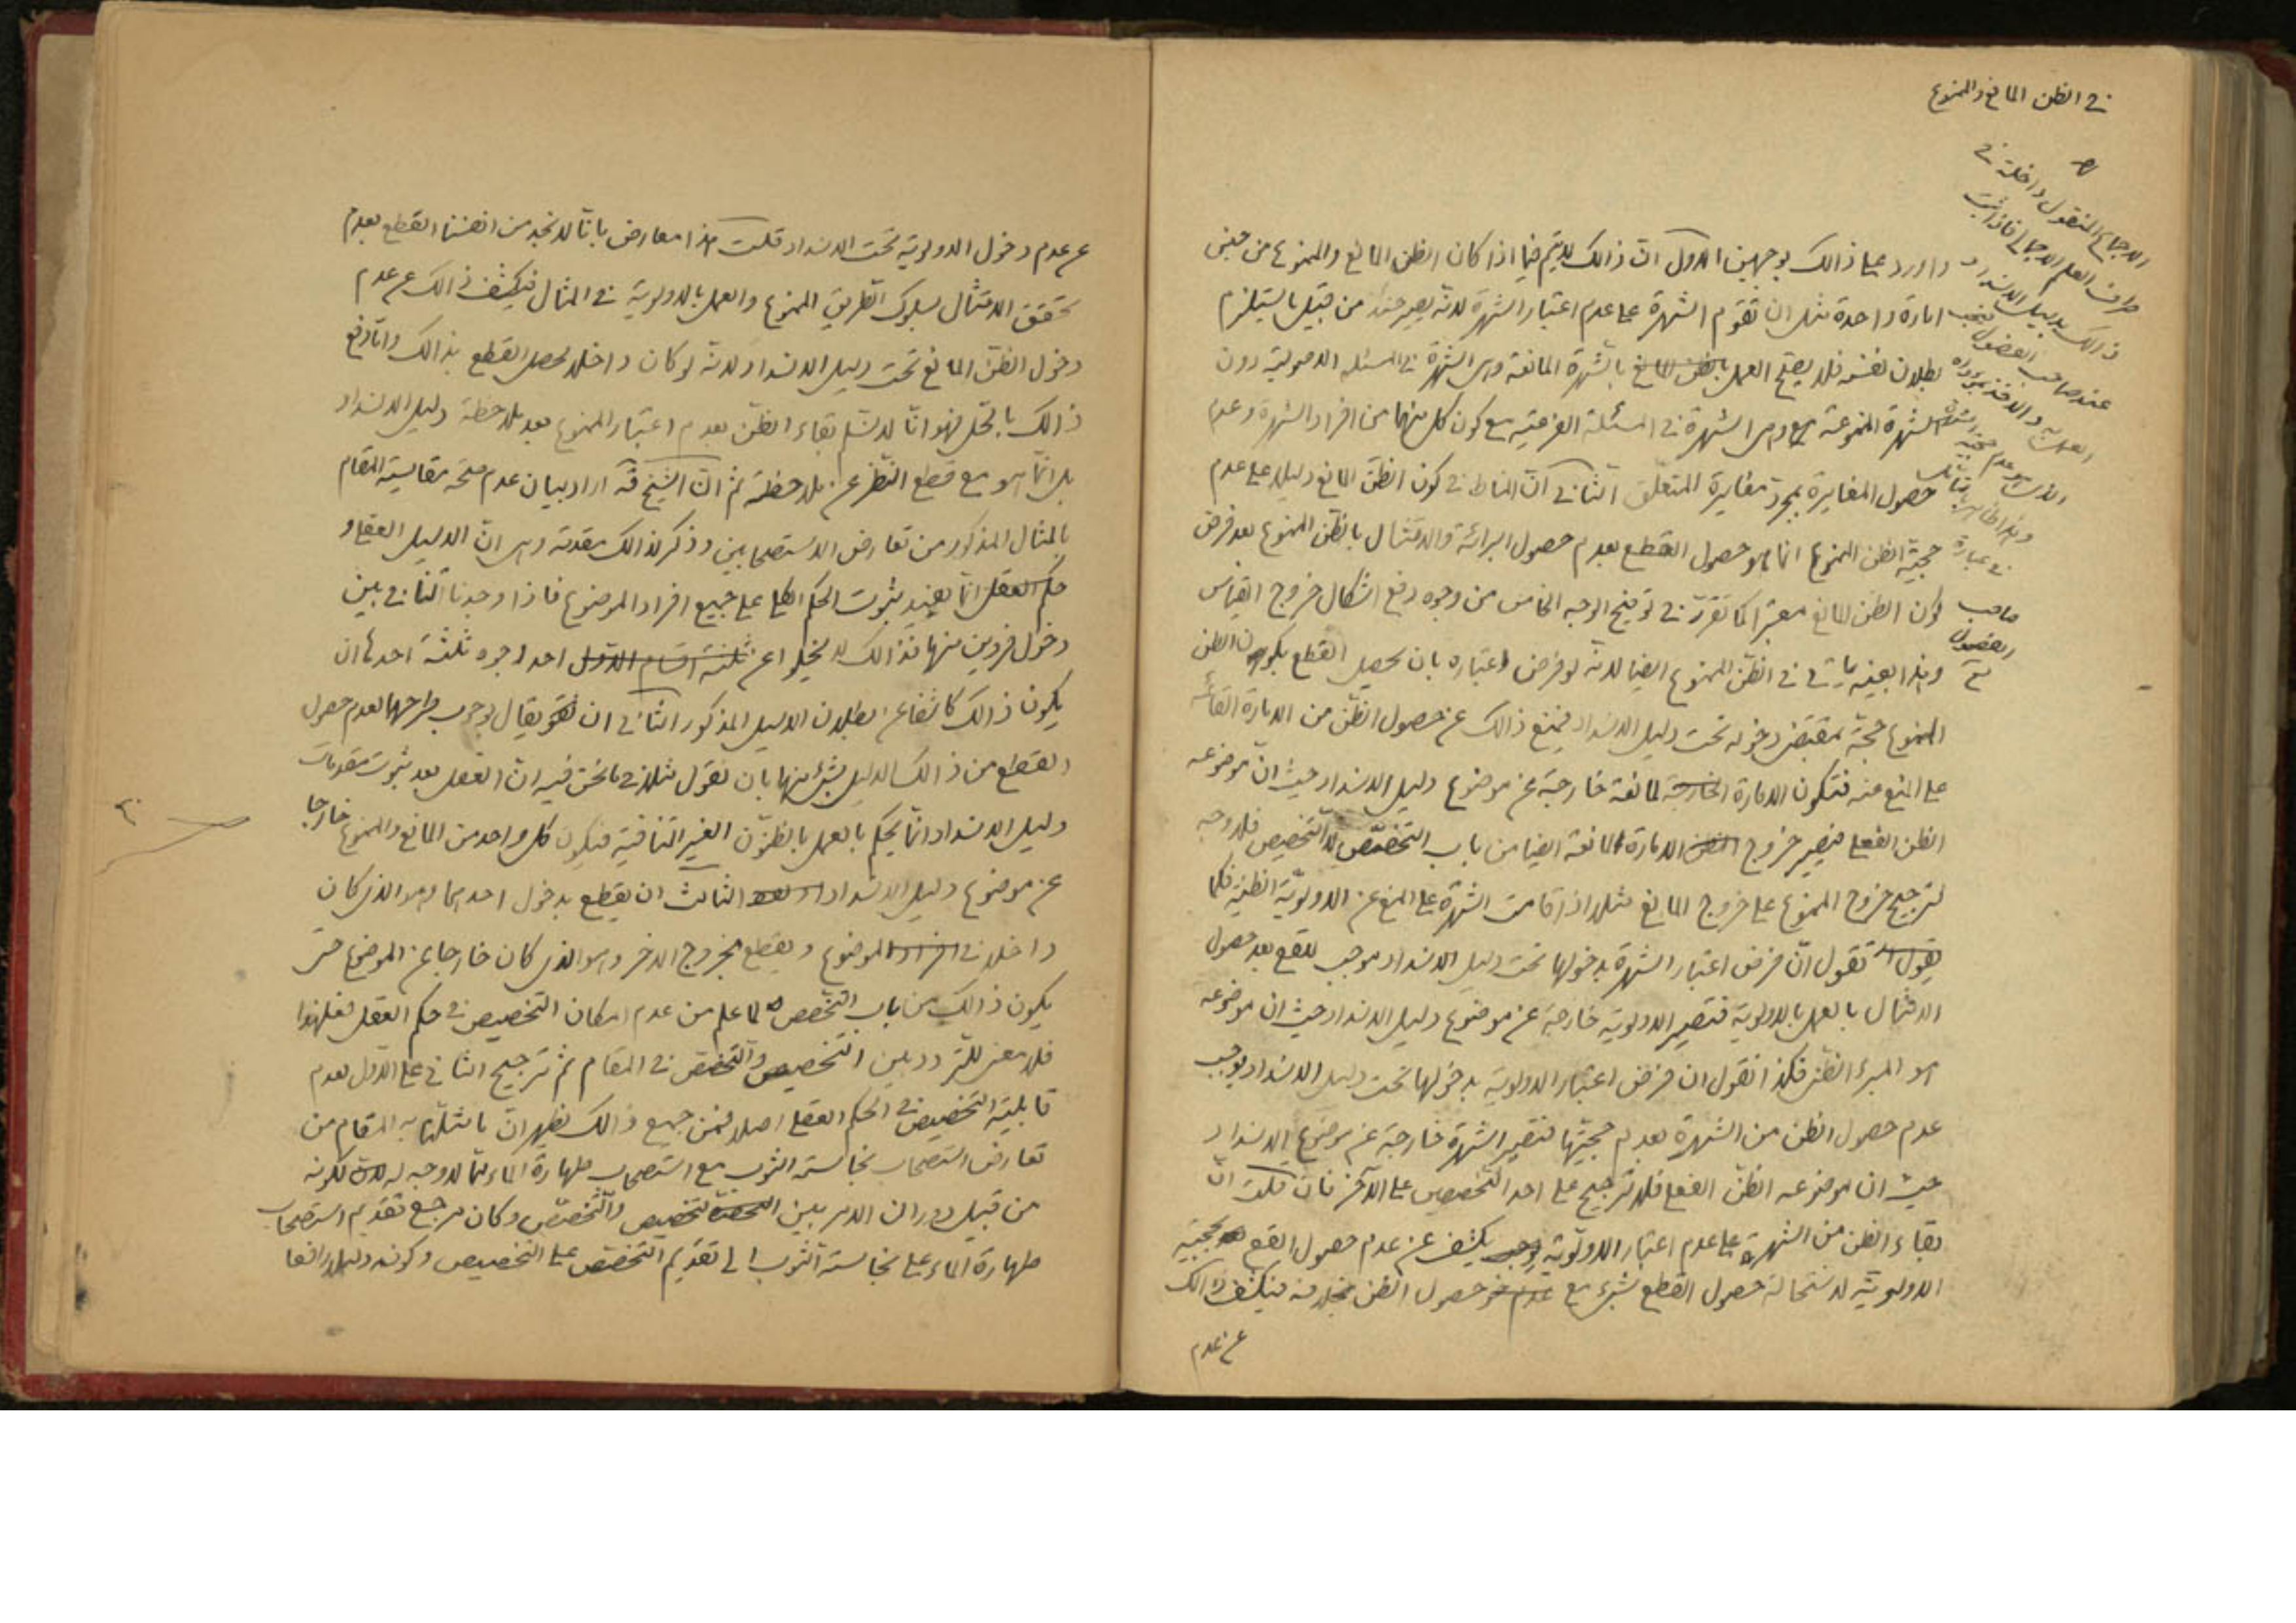 في الظن المانع والممنوع
الاجماع المنقول داخلة في
طرف العلم الاجمالي فاذا ثبت
ذالك بدليل الانسداد فيجب
عند صاحب الفصول
العمل به والاخذ بمؤداه
صاحب
الفصول
واورد على ذالك بوجهين الاول انّ ذالك لا يتم فيما اذا كان الظن المانع والممنوع من جنس
امارة واحدة مثل ان تقوم الشهرة على عدم اعتبار الشهرة لانه يصير حينئذ من قبيل ما يستلزم
بطلان نفسه فلا يصح العمل بالشهرة المانعة وهى الشهرة في المسئلة الاصولية دون
الشهرة الممنوعة وهى الشهرة في المسئلة الفرعية مع كون كل منهما من افراد الشهرة وعدم
حصول المغايرة بمجرد مغايرة المتعلق الثاني انّ المناط في كون الظن المانع دليلا على عدم
حجية الظن الممنوع انما هو حصول القطع بعدم حصول البرائة والامتثال بالظن الممنوع بعد فرض
كون الظن المانع معتبرا كما تقرّر في توضيح الوجه الخامس من وجوه رفع اشكال خروج القياس
وهذا بعينه يأتي في الظن الممنوع ايضا لانه لو فرض اعتباره بان يحصل القطع بكون الظن
الممنوع حجة بمقتضى دخوله تحت دليل الانسداد فيمنع ذالك عن حصول الظن من الامارة القائمة
على المنع منه فتكون الامارة المانعة خارجة عن موضوع دليل الانسداد حيث انّ موضوعه
الظن الفعلي فيصير خروج الامارة المانعة ايضا من باب التخصّص لا التخصيص فلا وجه
لترجيح خروج الممنوع على خروج المانع مثلا اذا قامت الشهرة على المنع عن الاولوية الظنية فكما
تقول انّ فرض اعتبار الشهرة بدخولها تحت دليل الانسداد موجب للقطع بعدم حصول
الامتثال بالعمل بالاولوية فتصير الاولوية خارجة عن موضوع دليل الانسداد حيث ان موضوعه
هو المبرء الظني فكذا نقول ان فرض اعتبار الاولوية بدخولها تحت دليل الانسداد يوجب
عدم حصول الظن من الشهرة بعدم حجيتها فتصير الشهرة خارجة عن موضوع الانسداد
حيث ان موضوعه الظن الفعلي فلا ترجيح على احد التخصصين على الآخر فان قلت انّ
بقاء الظن من الشهرة على عدم اعتبار الاولوية يكشف عن عدم حصول القطع بحجية
الاولوية لاستحالة حصول القطع بشيء مع حصول الظن بخلافه فيكشف ذالك
عن عدم
عن عدم دخول الاولوية تحت الانسداد قلت هذا معارض بانّا لا نجد من انفسنا القطع بعدم
تحقق الامتثال بسلوك الطريق الممنوع والعمل بالاولوية في المثال فيكشف ذالك عن عدم
دخول الظن المانع تحت دليل الانسداد لانه لو كان داخلا لحصل القطع بذالك وامّا رفع
ذالك بالحل فهو انّا لا نسلم بقاء الظن بعدم اعتبار الممنوع بعد ملاحظة دليل الانسداد
بل انّما هو مع قطع النظر عن ملاحظته ثم انّ الشيخ قده اراد بيان عدم صحة مقايسة المقام
بالمثال المذكور من تعارض الاستصحابين وذكر لذالك مقدمة وهى انّ الدليل العقلي و
حكم العقل انّما يفيد ثبوت الحكم الكلي على جميع افراد الموضوع فاذا وجدنا التنافي بين
دخول فردين منها فذالك لا يخلوا عن احد وجوه ثلثة احدها ان
يكون ذالك كاشفا عن بطلان الدليل المذكور الثاني ان يقال بوجوب طرحهما لعدم حصول
القطع من ذالك الدليل بشيء منهما بان نقول مثلا في ما نحن فيه انّ العقل بعد ثبوت مقدمات
دليل الانسداد انّما يحكم بالعمل بالظنون الغير المتنافية فيكون كل واحد من المانع والممنوع خارجا
عن موضوع دليل الانسداد الثالث ان يقطع بدخول احدهما وهو الذي كان
داخلا في الموضوع ويقطع بخروج الاخر وهو الذي كان خارجا عن الموضوع حتى
يكون ذالك من باب التخصص لما علم من عدم امكان التخصيص في حكم العقل فعلى هذا
فلا معنى للتردد بين التخصيص والتخصص في المقام ثم ترجيح الثاني على الاول لعدم
قابلية التخصيص في الحكم العقلي اصلا فمن جميع ذالك يظهر انّ ما مثل به المقام من
تعارض استصحاب نجاسة الثوب مع استصحاب طهارة الماء ممّا لا وجه له لكونه
من قبيل دوران الامر بين التخصيص والتخصّص وكان مرجع تقديم استصحاب
طهارة الماء على نجاسة الثوب الى تقديم التخصص على التخصيص وكونه دليلا رافعا